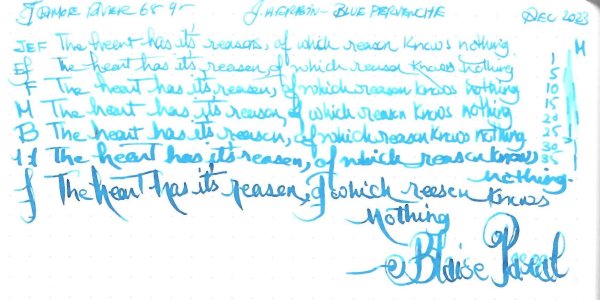 Tomoe River 68 gr J. Herbin - Blue Pervenche Dec 2023
JEF The heart has it's reasons, of which reason knows nothing. 1 M
EF The heart has it's reason, of which reason knows nothing 5
F The heart has it's reason, of which reason knows nothing 10
M The heart has it's reason, of which reason knows nothing 15
B The heart has it's reason, of which reason knows nothing 20
25
1.1 The heart has it's reason, of which reason knows 30
nothing. 35
f The heart has it's reason, of which reason knows
Nothing
Blaise Pascal